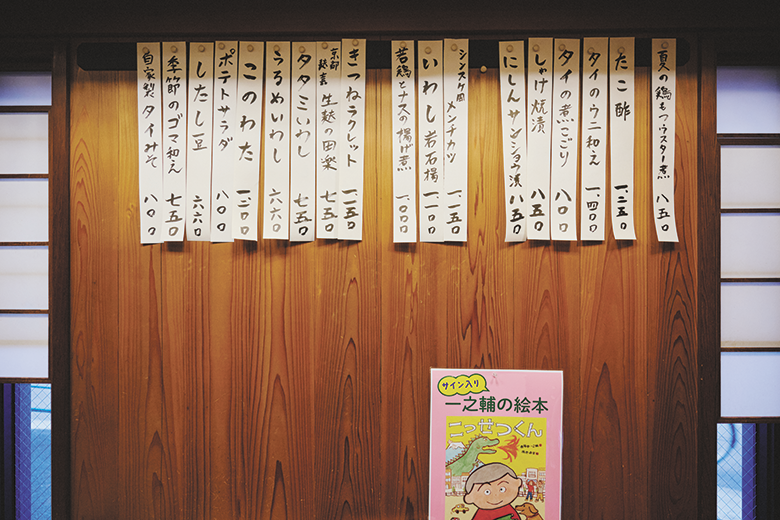 夏の鶏もつウスター煮 八五〇
たこ酢 一、二五〇
タイのウニ和え 一、四〇〇
タイの煮こごり 八〇〇
しゃけ焼漬 八五〇
にしんサンショウ漬 八五〇
シンスケ風メンチカツ 一、一五〇
いわし岩石揚 一、一〇〇
若鶏とナスの揚げ煮 一、〇〇〇
きつねラクレット 一、一五〇
京都 生麩の田楽 七五〇
タタミいわし 七五〇
うるめいわし 六六〇
このわた 一、三〇〇
ポテトサラダ 八〇〇
したし豆 六六〇
季節のゴマ和え 七五〇
自家製タイみそ 八〇〇
サイン入り
一之輔の絵本
こっせつくん